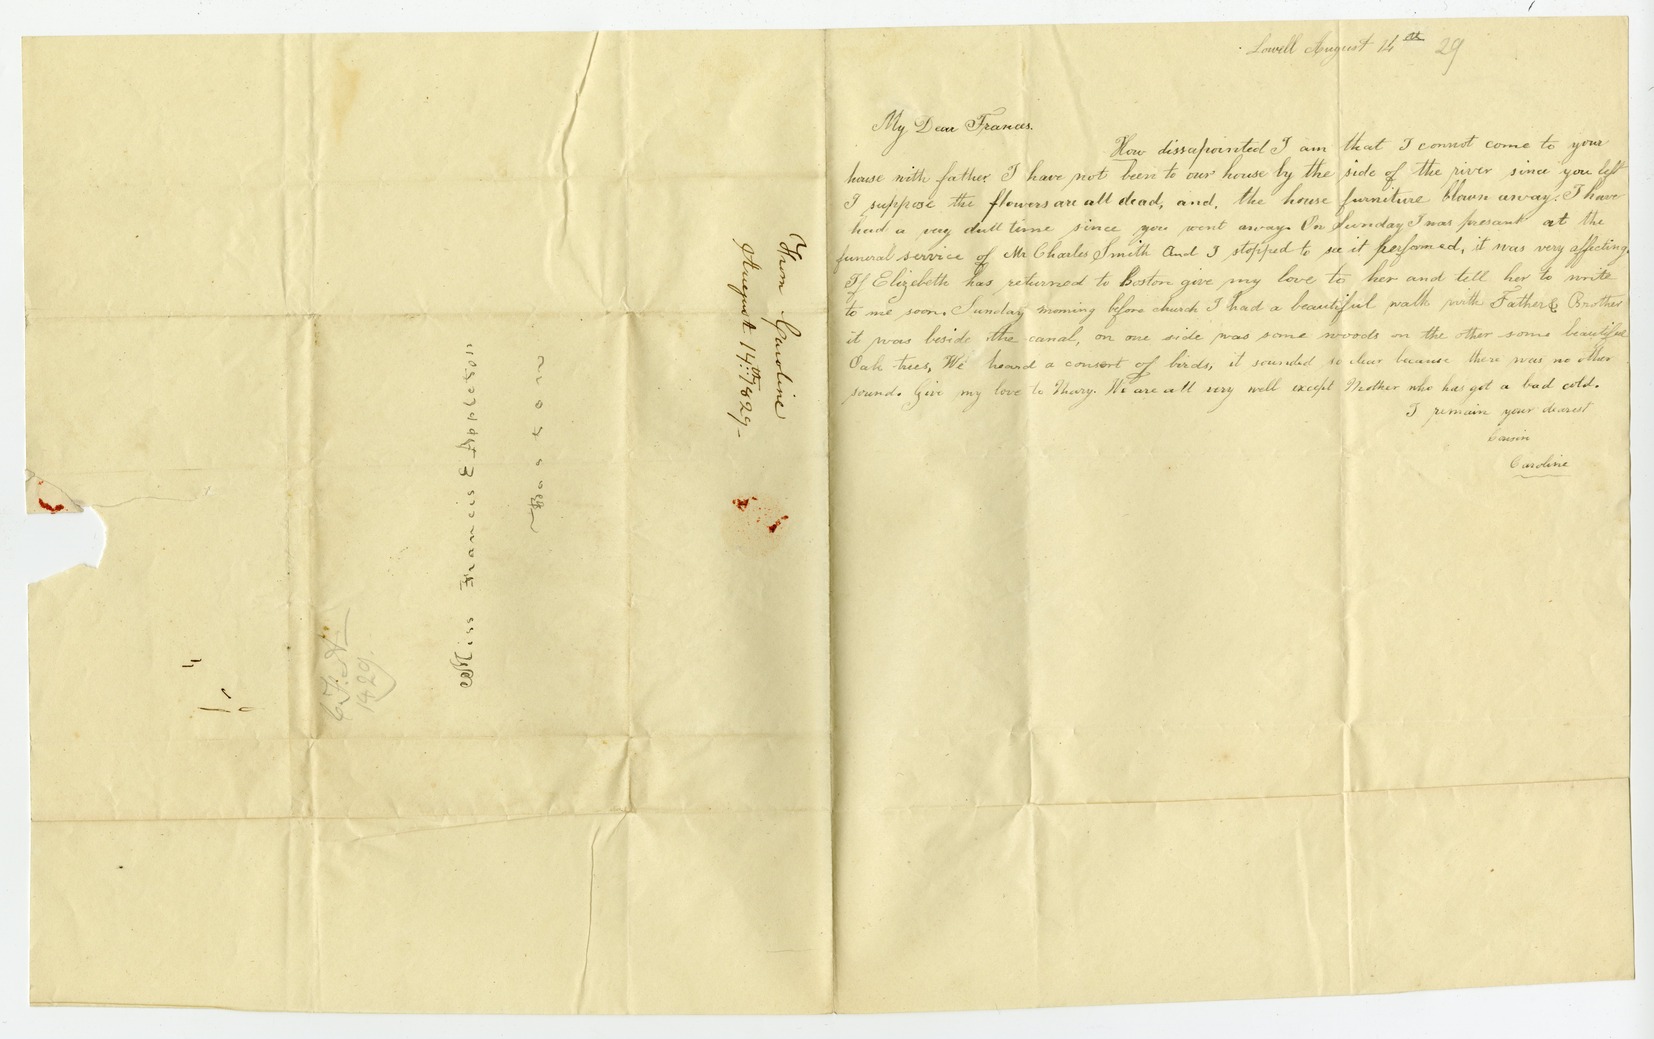 Lowell August 14th 29
My Dear Frances.
How dissapointed I am that I connot come to your
house with father. I have not been to our house by the side of the river since you left
I suppose the flowers are all dead, and, the house furniture blown away. I have
had a very dull time since you went away. On Sunday I was presant at the
funeral service of Mr Charles Smith And I stopped to see it performed, it was very affecting.
If Elizebeth has returned to Boston give my love to her and tell her to write
to me soon. Sunday morning before church I had a beautiful walk with Father & Brother
it was beside the canal, on one side was some woods on the other some beautiful
Oak trees, We heard a consert of birds, it sounded so clear because there was no other
sound. Give my love to Mary. We are all very well except Mother who has got a bad cold.
I remain your dearest
Cousin
Caroline
From Caroline
August 14th 1829-
Boston
Miss Francis E Appleton
1829.